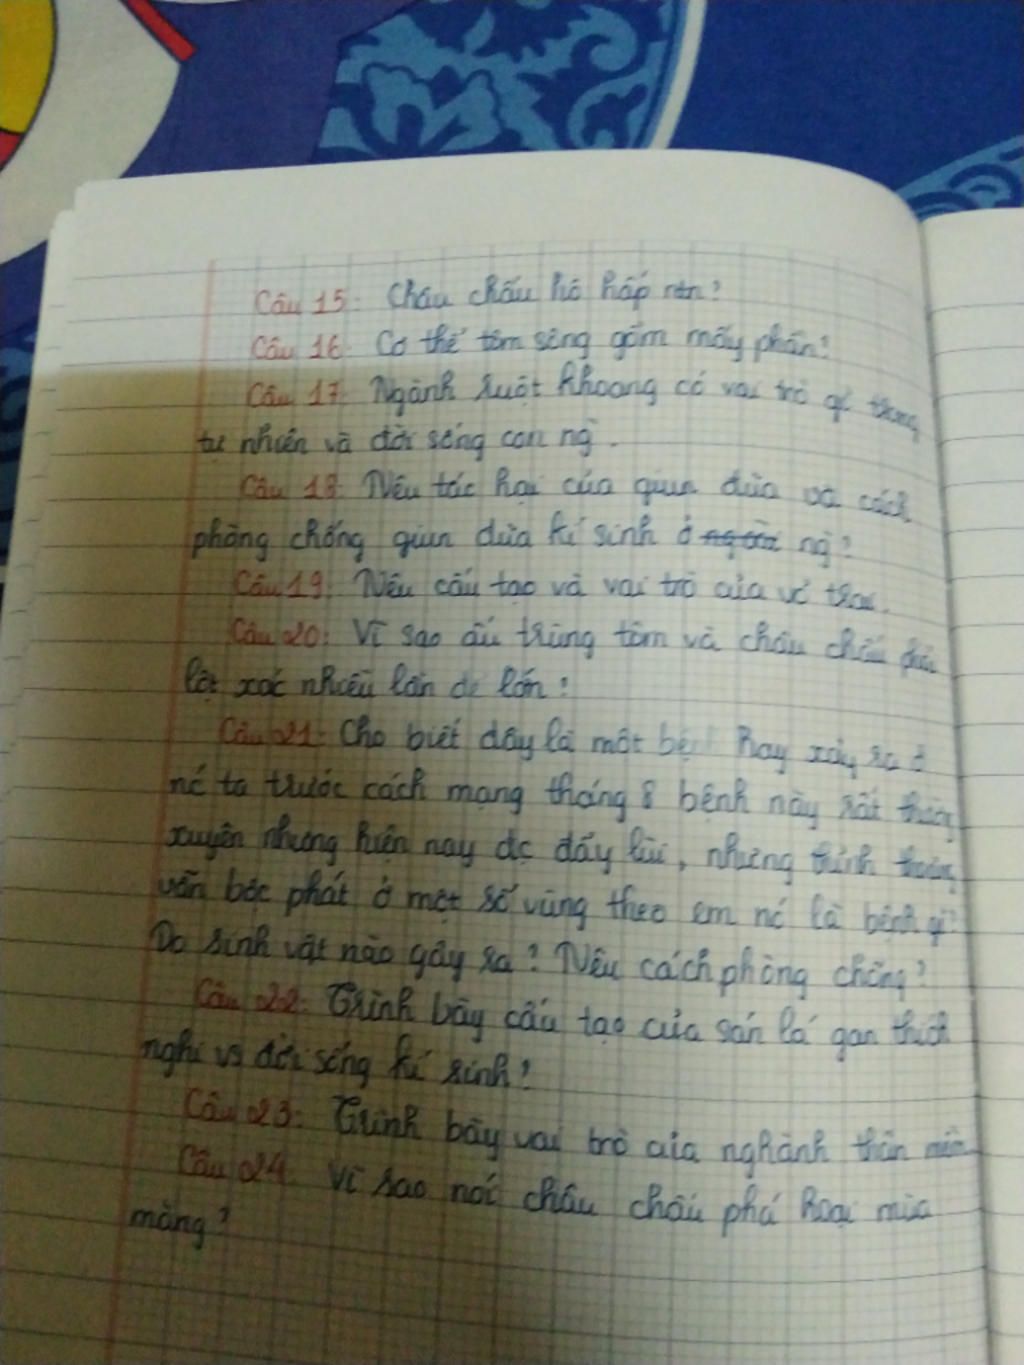 Câu 15: Châu chấu hô hấp ntn?
Câu 16: Cơ thể tôm sông gồm mấy phần?
Câu 17: Ngành ruột khoang có vai trò gì trong
tự nhiên và đời sống con ng̀.
Câu 18: Nêu tác hại của giun đũa và cách
phòng chống giun đũa kí sinh ở người ng̀?
Câu 19: Nêu cấu tạo và vai trò của vỏ trai.
Câu 20: Vì sao ấu trùng tôm và châu chấu phải
lột xác nhiều lần để lớn?
Câu 21: Cho biết đây là một bệnh hay xảy ra ở
nc ta trước cách mạng tháng 8 bệnh này rất thường
xuyên nhưng hiện nay đc đẩy lùi, nhưng thỉnh thoảng
vẫn bộc phát ở một số vùng theo em nó là bệnh gì?
Do sinh vật nào gây ra? Nêu cách phòng chống?
Câu 22: Trình bày cấu tạo của sán lá gan thích
nghi vs đời sống kí sinh?
Câu 23: Trình bày vai trò của nghành thân mềm
Câu 24: Vì sao nói châu chấu phá hoại mùa
màng?